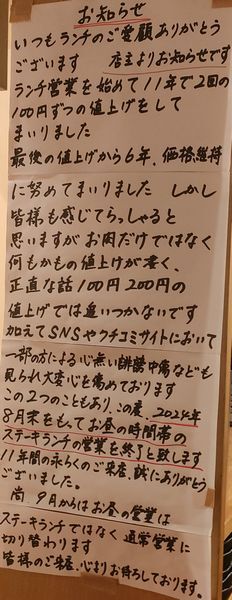 お知らせ
いつもランチのご愛顧ありがとう
ございます 店主よりお知らせです
ランチ営業を始めて11年で2回の
100円ずつの値上げをして
まいりました
最後の値上げから6年、価格維持
に努めてまいりました しかし
皆様も感じてらっしゃると
思いますがお肉だけではなく
何もかもの値上げが凄く、
正直な話100円200円の
値上げでは追いつかないです
加えてSNSやクチコミサイトにおいて
一部の方による心無い誹謗中傷なども
見られ大変心を痛めております
この2つのこともあり、この度、2024年
8月末をもってお昼の時間帯の
ステーキランチの営業を終了と致します
11年間の永らくのご来店、誠にありがとう
ございました。
尚 9月からはお昼の営業は
ステーキランチではなく 通常営業に
切り替わります
皆様のご来店、心よりお待ちしております。